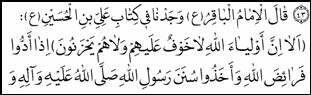 (٤٣) قَالَ الْاِمَامُ الْبَاقِرُ(ع) وَجَدْنَا فِي كِتَابِ عَلِيِّ بْنِ الْحُسَيْنِ(ع):
(اَلَا اِنَّ اَوْلِيَاءَ اللّٰهِ لَاخَوْفٌ عَلَيْهِمْ وَلَاهُمْ يَحْزَنُونَ) اِذَا اَدُّوا
فَرَائِضَ اللّٰهِ وَاَخَذُوا سُنَنَ رَسُولِ اللّٰهِ صَلَّى اللّٰهُ عَلَيْهِ وَآلِهِ وَ